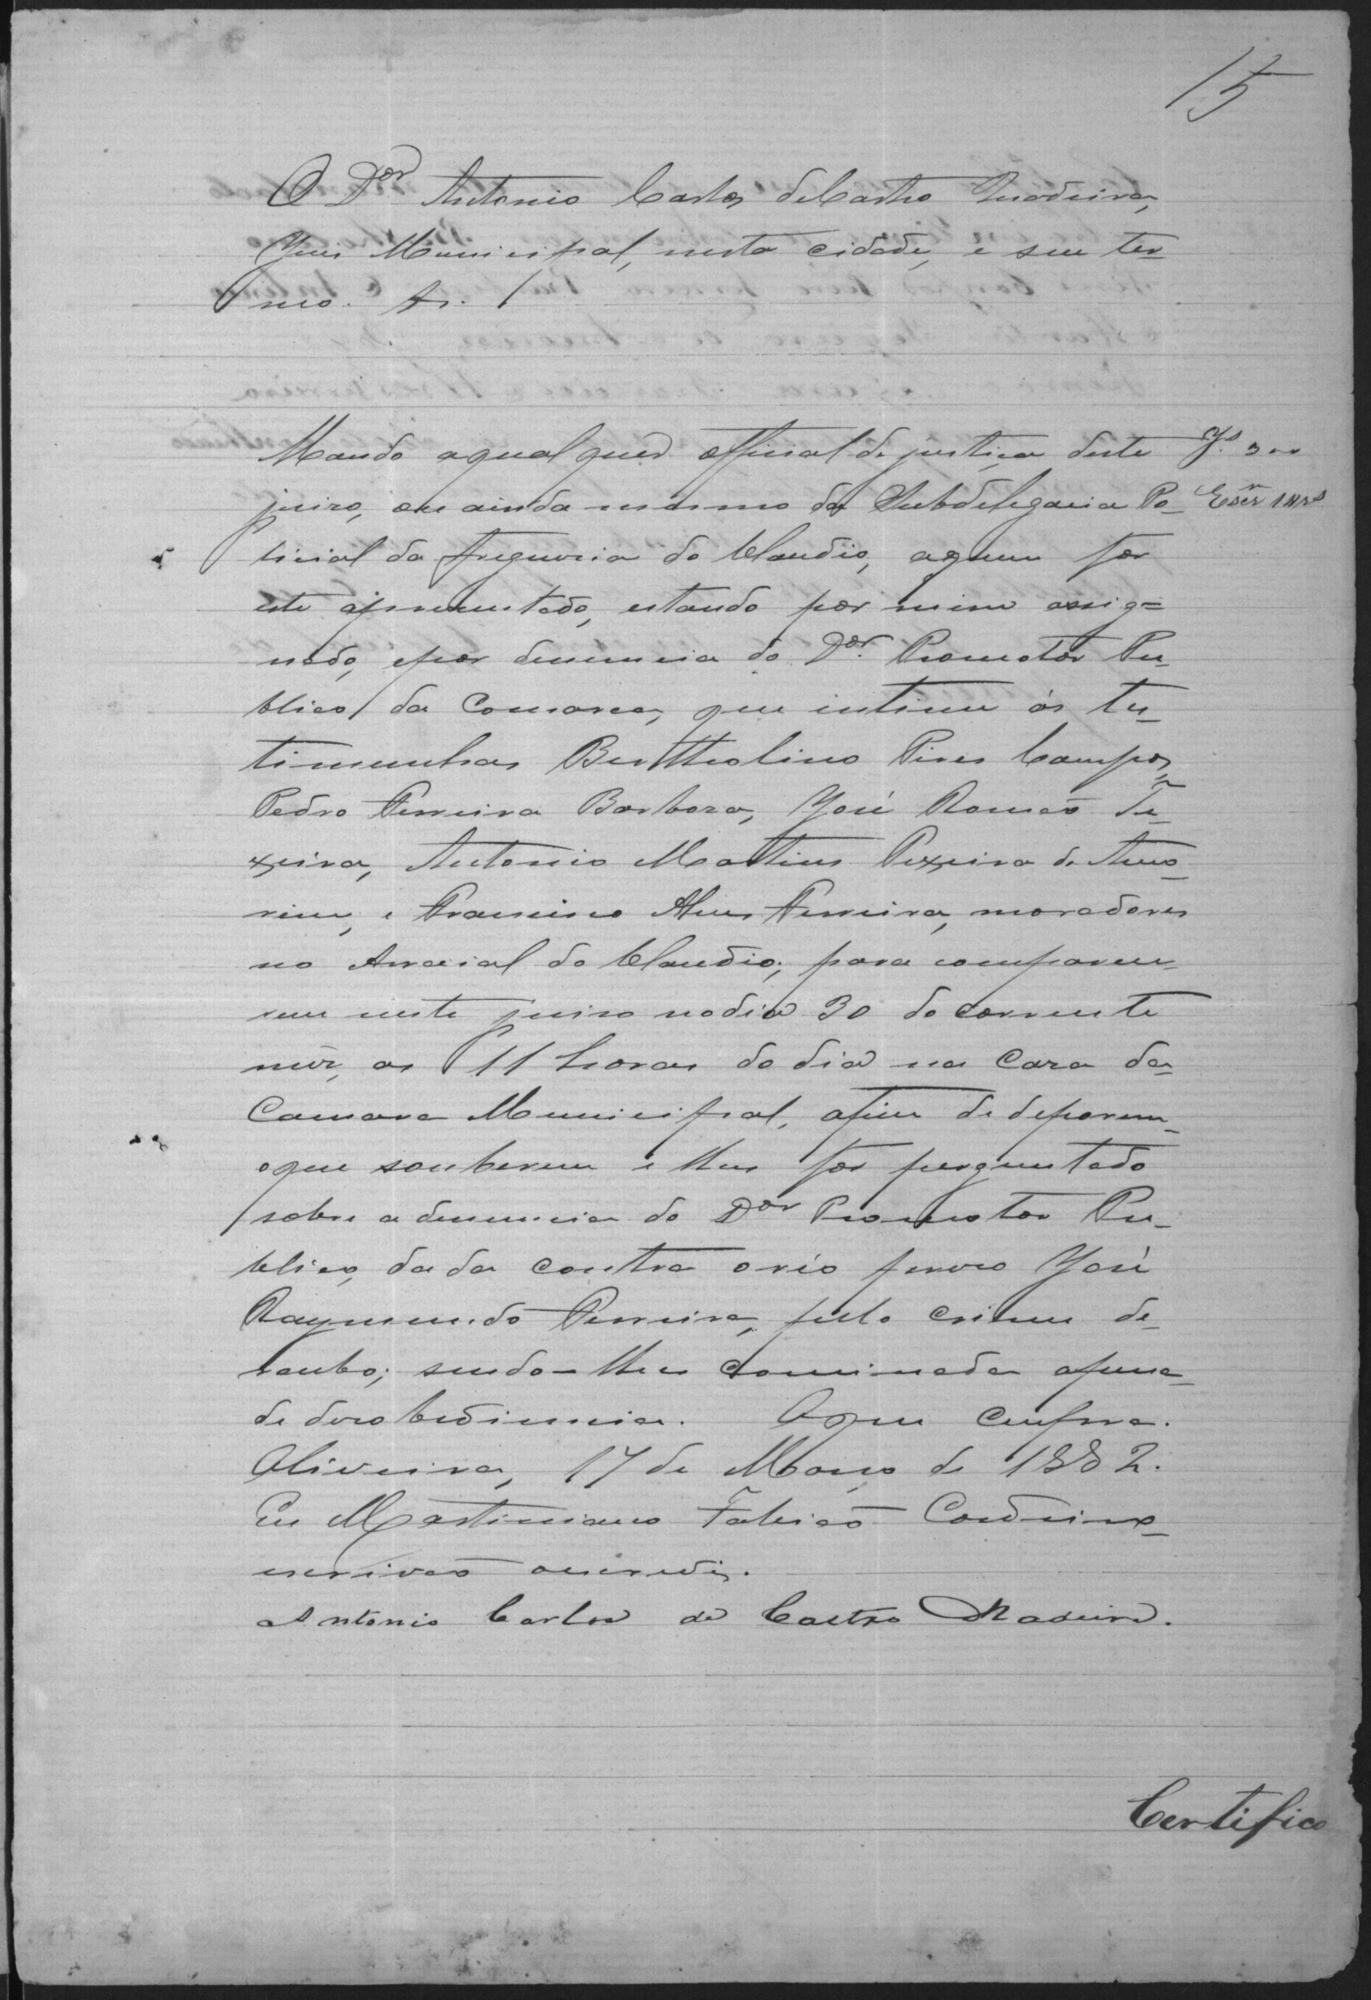 15
O Dor Antonio Carlos de Castro Madeira,
Juis Municipal, nesta cidade, e seu ter
mo. &.
Mando aqualquer official de justiça deste
Js 300
juiso, ou ainda mesmo da Subdelegacia Po-
Escrm
licial da freguesia do Claudio, aquem for
este apresentado, estando por mim assig=
nado, e por denuncia do Dor. Promotor Pu-
blico da Comarca, que intime ás tes-
timunhas Bertholino Pires Campos,
Pedro Ferreira Barbosa, José Romão Tei-
xeira, Antonio Martins Teixeira de Amo-
rim, e Francisco Alves Ferreira, moradores
no Arraial do Claudio, para comparece-
rem neste juiso nodia 30 do corrente
mês, as 11 horas do dia na Casa da
Camara Municipal, afim de deporem
oque souberem e lhes for perguntado
sobre a denuncia do Dor Promotor Pu-
blico, dada contra o réo preso José
Raymundo Ferreira, pelo crime de
roubo; sendo-lhes cominada apena
de desobediencia. Oque cumpra.
Oliveira, 17 de Março de 1882.
Eu Martiniano Fabião Cordeiro
escrivão oescrevi.
Antonio Carlos de Castro Madeira.
Certifico